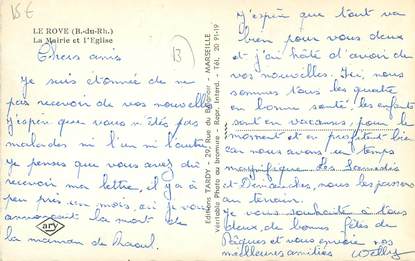 15€
LE ROVE (B.-du-Rh.)
La Mairie et l'Eglise
13
Chers amis
Je suis étonnée de ne
pas recevoir de vos nouvelles
j'espère que vous n'êtes pas
malades ni l'un ni l'autre
Je pense que vous avez dû
recevoir ma lettre, il y a à
peu près un mois, où je vous
annonçait la mort de
la maman de Raoul.
ary
Editions TARDY - 29, Rue du - MARSEILLE
véritable Photo au bromure - Repr. Interd. - Tél. 20 91-19
J'espère que tout va
bien pour vous deux
et j'ai hâte d'avoir de
vos nouvelles. Ici, nous
sommes tous les quatre
en bonne santé, les enfants
sont en vacances, pour le
moment et en profitent bien
car nous avons un temps
magnifique. Les Samedis
et Dimanches, nous les passons
au terrain.
Je vous souhaite à tous
deux, de bonnes fêtes de
Pâques et vous envoie nos
meilleures amitiés Welly